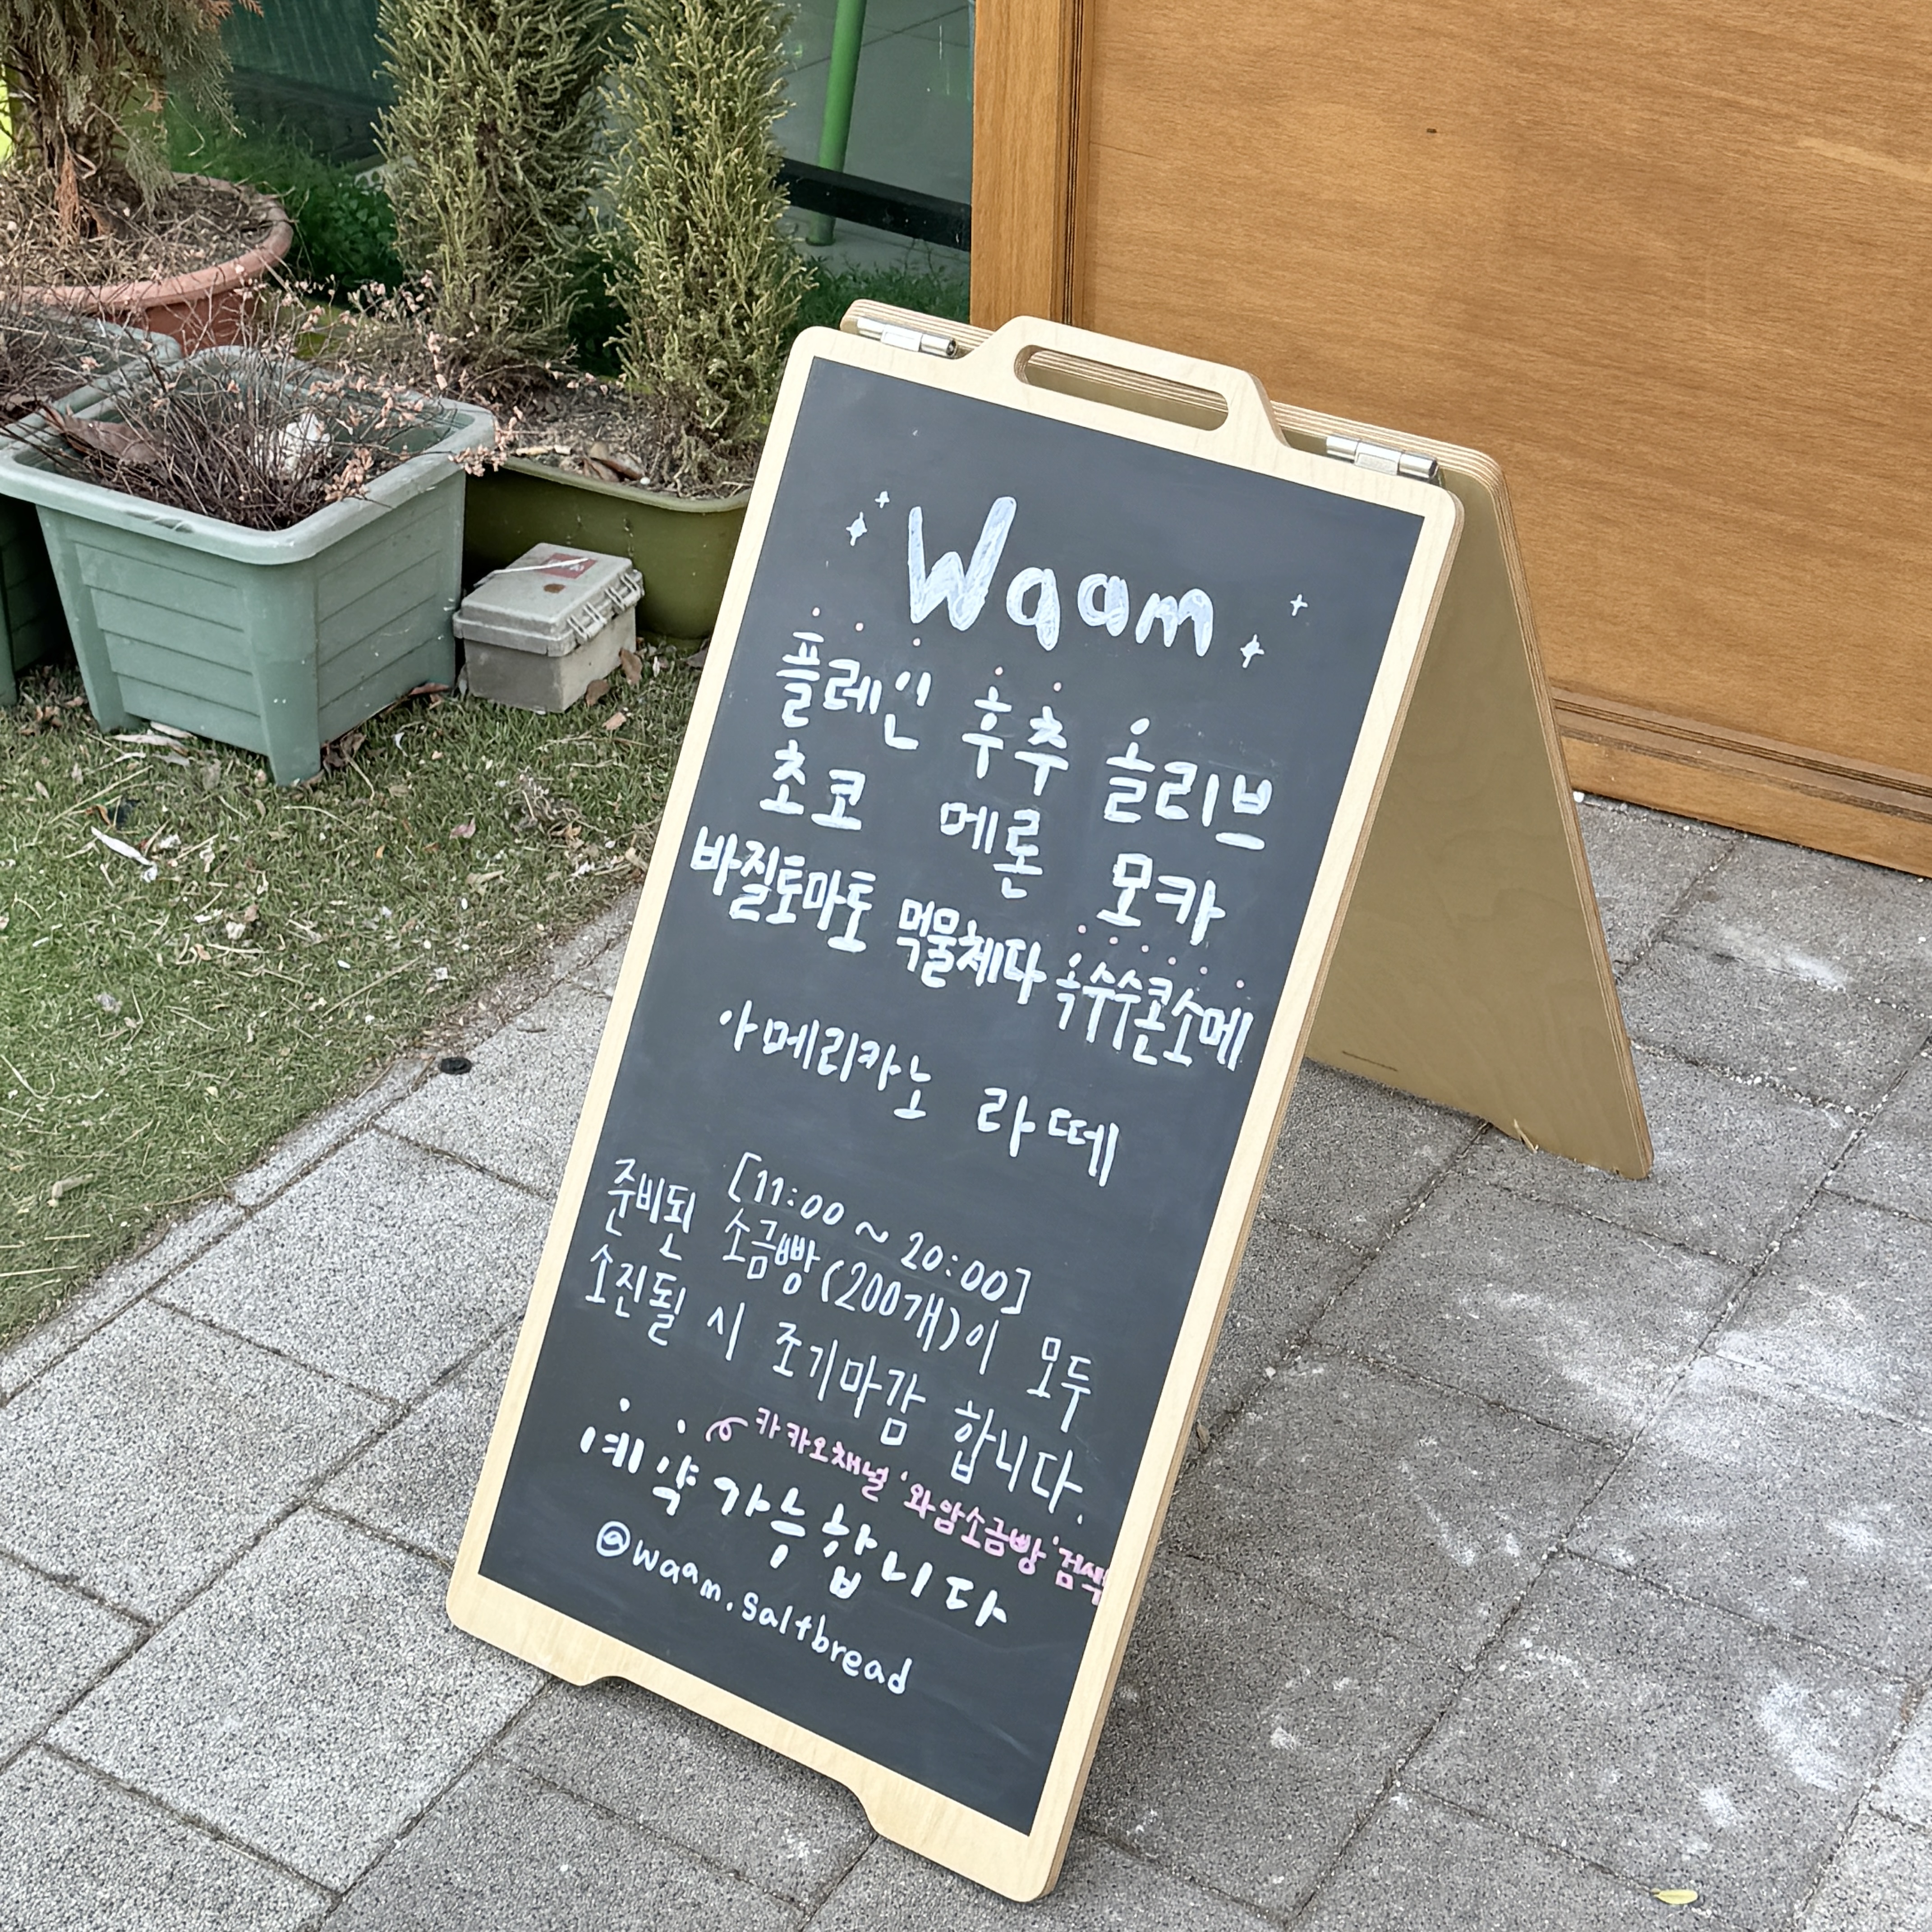 Waam
플레인 후추 올리브
초코 메론 모카
바질토마토 먹물체다 옥수수콘소메
아메리카노 라떼
[11:00 ~ 20:00]
준비된 소금빵(200개)이 모두
소진될 시 조기마감 합니다.
카카오채널 '와암소금빵' 검색
예약가능합니다
@waam.saltbread